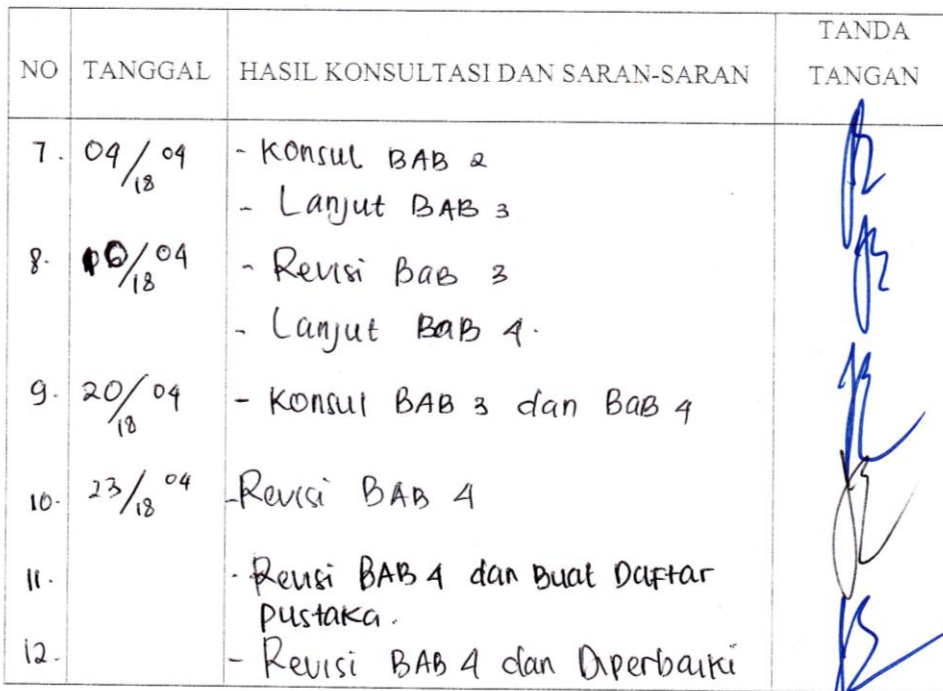 NO TANGGAL HASIL KONSULTASI DAN SARAN-SARAN TANDA TANGAN
7. 04/04/18 - Konsul BAB 2
- Lanjut BAB 3
8. /04/18 - Revisi BAB 3
- Lanjut BAB 4.
9. 20/04/18 - Konsul BAB 3 dan BAB 4
10. 23/04/18 - Revisi BAB 4
11. - Revisi BAB 4 dan Buat Daftar
Pustaka.
12. - Revisi BAB 4 dan Diperbaiki